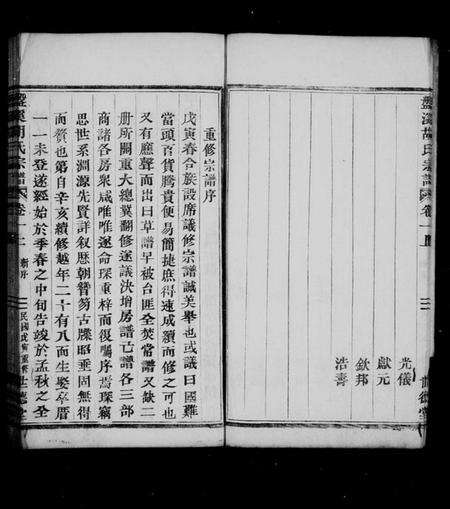 光儀
獻元
欽邦
浩壽
重修宗譜序
戊寅春合族設席議修宗譜誠美舉也或議曰國難
當頭百貨騰貴便易簡捷庶得速成續而修之可也
又有應聲而出曰草譜早被台匪全焚常譜又缺二
冊所關重大總冀翻修遂議決增房譜亡譜各三部
商諸各房眾咸唯唯遂命琛重梓而復囑序焉琛竊
思世系淵源先賢詳叙歷朝簪笏古牒昭垂固無得
而贅也第自辛亥續修越年二十有八而生娶卒厝
一一未登遂經始於季春之中旬告竣於孟秋之全
盤溪胡氏宗譜
卷一上
新序
民國戊寅重修